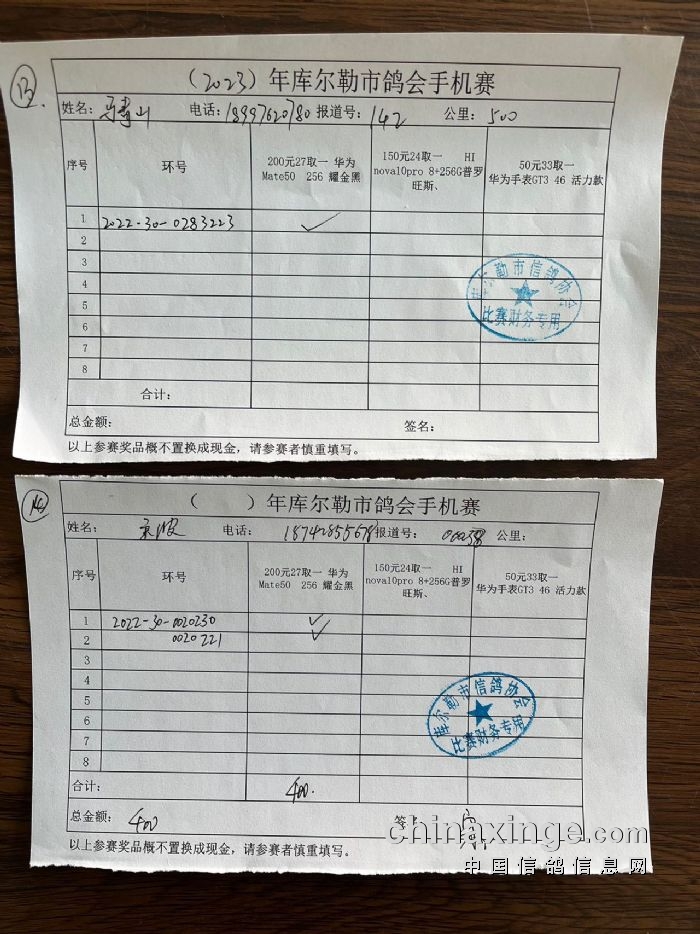 13.
（2023）年库尔勒市鸽会手机赛
姓名： 马青山 电话：18997620780 报道号：142 公里：500
序号 环号 200元27取一 华为Mate50 256 耀金黑 150元24取一 HI nova10pro 8+256G普罗旺斯、 50元33取一 华为手表GT3 46 活力款
1 2022-30-0283223 ✓
2
3
4
5
6
7
8
合计：
总金额： 签名：
以上参赛奖品概不置换成现金，请参赛者慎重填写。
库尔勒市信鸽协会
比赛财务专用
14
（ ）年库尔勒市鸽会手机赛
姓名： 电话： 18742855678 报道号： 公里：
序号 环号 200元27取一 华为Mate50 256 耀金黑 150元24取一 HI nova10pro 8+256G普罗旺斯、 50元33取一 华为手表GT3 46 活力款
1 2022-30-0020230 ✓
2 0020221 ✓
3
4
5
6
7
8
合计： 400.
总金额： 400 签名
以上参赛奖品概不置换成现金，请参赛者慎重填写。
库尔勒市信鸽协会
比赛财务专用
chinaxinge.com
中国信鸽信息网